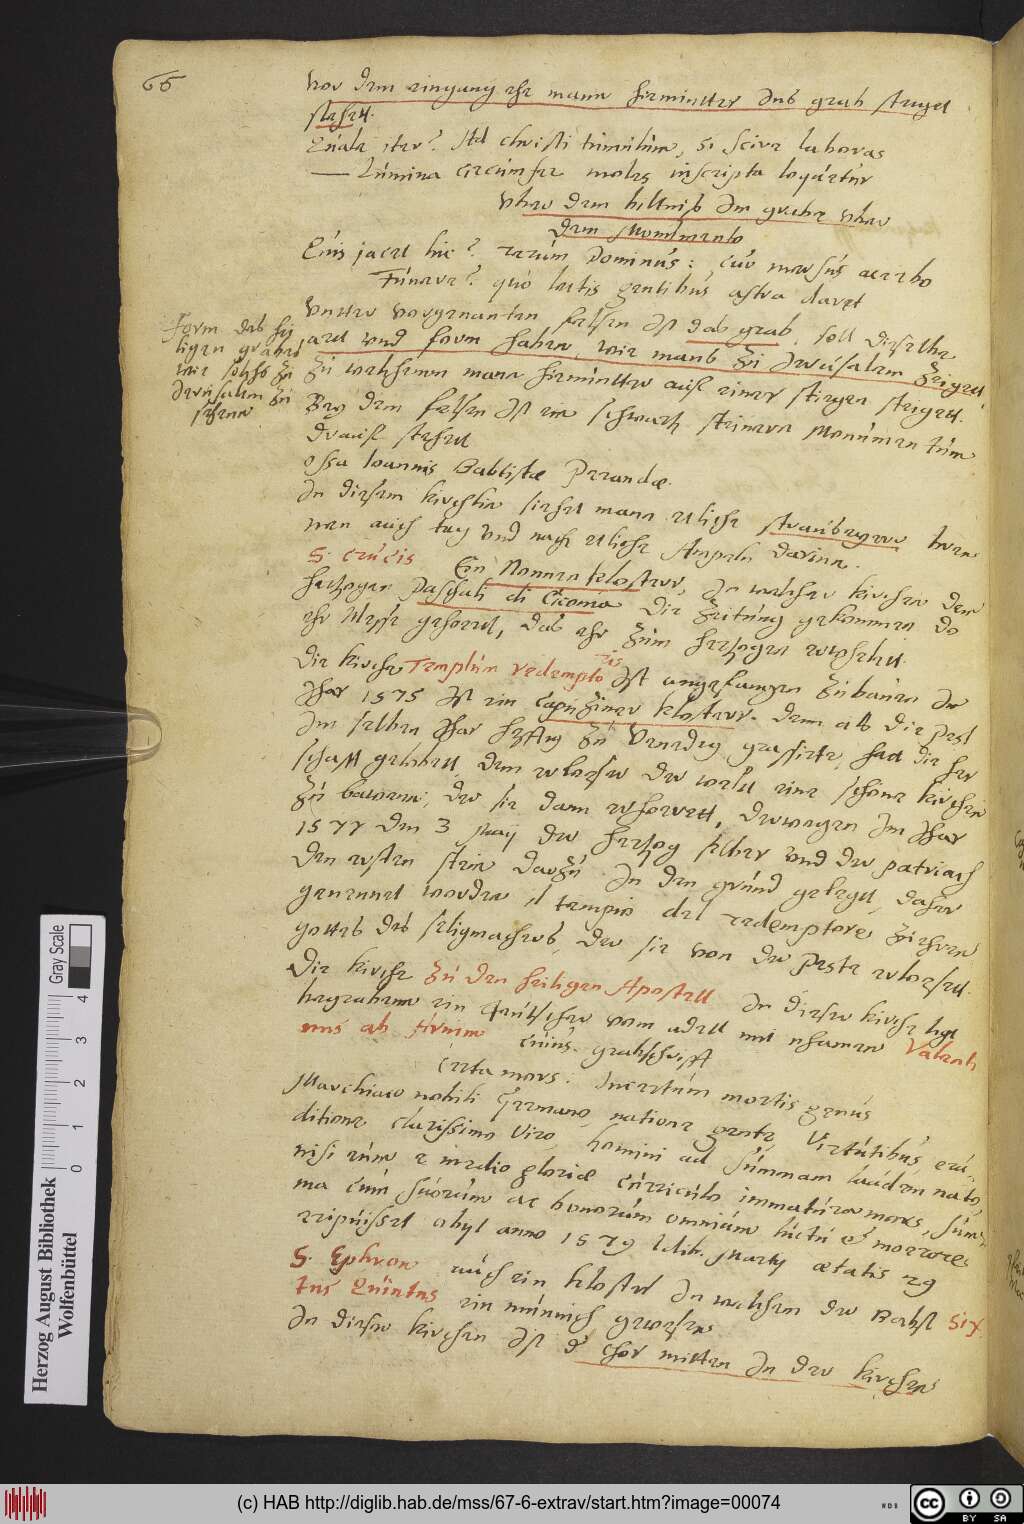 66
vor dem eingang ehe mann hinuntter ins grab steiget
stehett.
Quale iter? Ad christi tumulum, si scire laboras
Lumina circumfer moles inscripta loquetur
vber dem biltnis im grabe vber
dem Monumento
Quis jacet hic? rerum Dominus: cur mersus acerbo
Funere? quo laetis gentibus astra daret
vntter vorgenanten felsen ist das grab, soll dieselbe
artt vnd form haben, wie mans zu Jerusalem zeigett,
zu welchem mann hinuntter auf einer stiegen steigett.
Form des hei
ligen grabes
wie solchs zu
Jerusalem zu
sehenn
Bey dem felsen ist ein schwartz steinern Monumentum
drauf stehett
ossa Ioannis Babtistae Perandae.
In diesem kirchlin siehet mann etliche straubegern
nen auch tag vnd nacht etliche Ampeln darinn.
S. crucis Ein Nonnen kloster, In welcher kirchen dem
hertzogen Paschali di Ciconia die zeitung gekommen do
ehr Messe gehorett, das ehr zum hertzogen erwehlett.
Die kirche Templum redempto
ris
Ist angefangen zu bauen Im
Jhar 1575 Ist ein capuziner kloster. dann als die pest
Im selben Jhar hefftig zu Venedig grassirte, hat die her
schafft gelobett, dem erloeser der weltt eine schone kirchen
zu bawen, der sie dann erhorett, derwegen Im Jhar
1577 den 3 May der hertzog selber vnd der patriach
den ersten stein darzu In den grund gelegtt, daher
genennet worden il tempio del redemptore zu ehren
gottes des seligmachers, der sie von der peste erloesett.
Die kirche zu den heiligen Apostell In dieser kirche ligt
begraben ein teutscher vom adell mit nhamen Valenti
nus ab tirnim cuius grabschrifft
Certa mors: Incertum mortis genus
Marchiaco nobili Germano, natione gente, Virtutibus eru
ditione clarissimo Viro, homini ad summam laudem nato,
nisi eum e medio gloriae curriculo immatura mors, sum
ma cum suorum ac bonorum omnium luctu et moerore
eripuisset obyt anno 1579 Martij aetatis 29
S. Ephron auch ein kloster In welchem der Babst Six
tus Quintus ein munnich gewesen
In dieser kirchen ist d chor mitten In der kirchen
Gray Scale
4
3
2
1
0
Herzog August Bibliothek
Wolfenbüttel
(c) HAB http://diglib.hab.de/mss/67-6-extrav/start.htm?image=00074
WDB
cc
BY
SA